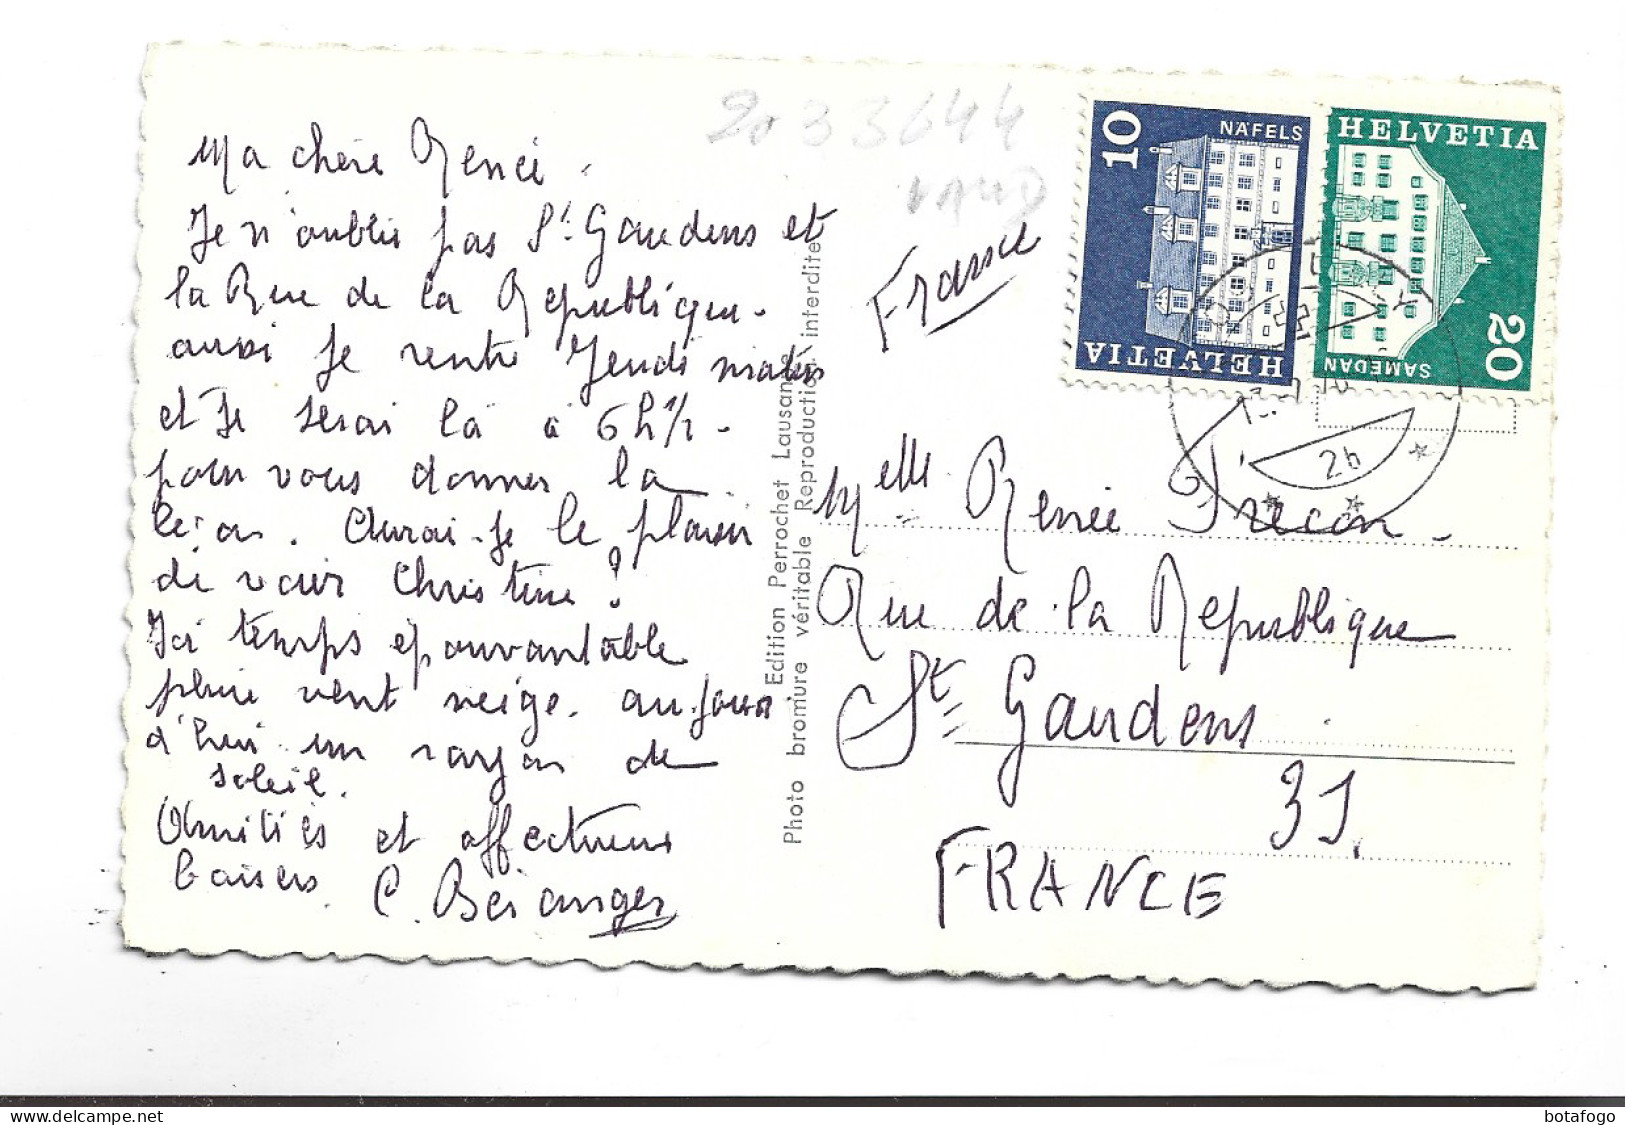 2033644
VAUD
Ma chère Renée.
Je n'oublie pas St. Gaudens et
la Rue de la République.
aussi je rentre Jeudi matin
et je serai là à 6h1/2.
pour vous donner la
leçon. Aurai-je le plaisir
de voir Christine?
Ici temps épouvantable
pluie vent neige. aujour
d'hui un rayon de
soleil.
Amitiés et affectueux
baisers. C. Béranger
Edition Perrochet Lausanne
Photo bromure véritable Reproduction interdite
France
10
NÄFELS
HELVETIA
HELVETIA
20
SAMEDAN
24
Melle Renée Trecon.
Rue de la République
St Gaudens
31.
FRANCE
botafogo